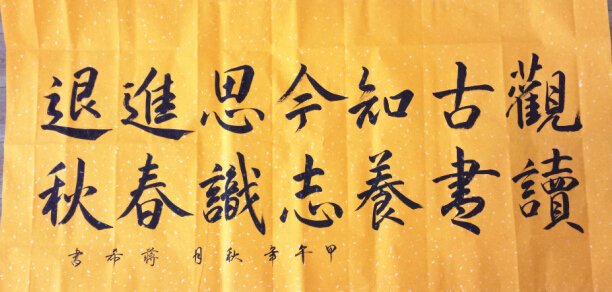 觀古知今思進退
讀書養志識春秋
甲午年秋月蔣希書